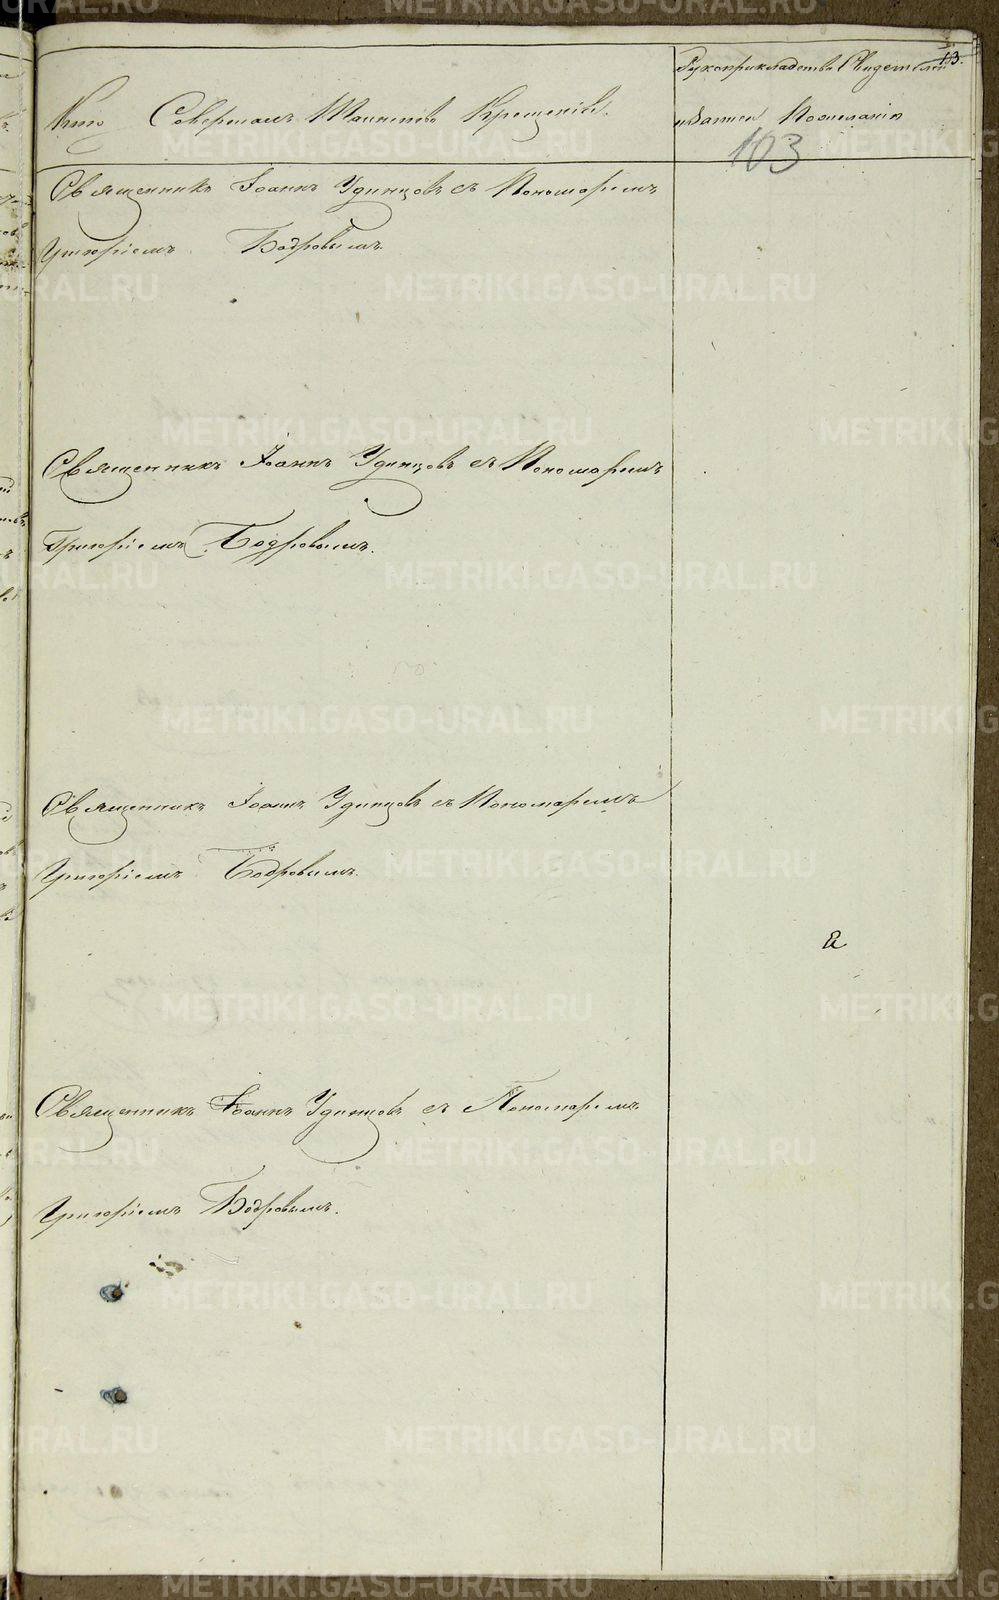 13.
Рукоприкладство Свидетелей
и Записи По желанію
103
Кто Совершалъ Таинство Крещенія.
Священникъ Іоаннъ Удинцовъ съ Пономаремъ
Григоріемъ Бодровымъ
Священникъ Іоаннъ Удинцовъ съ Пономаремъ
Григоріемъ Бодровымъ.
Священникъ Іоаннъ Удинцовъ съ Пономаремъ
Григоріемъ Бодровымъ.
Священникъ Іоаннъ Удинцовъ съ Пономаремъ
Григоріемъ Бодровымъ.
METRIKI.GASO-URAL.RU